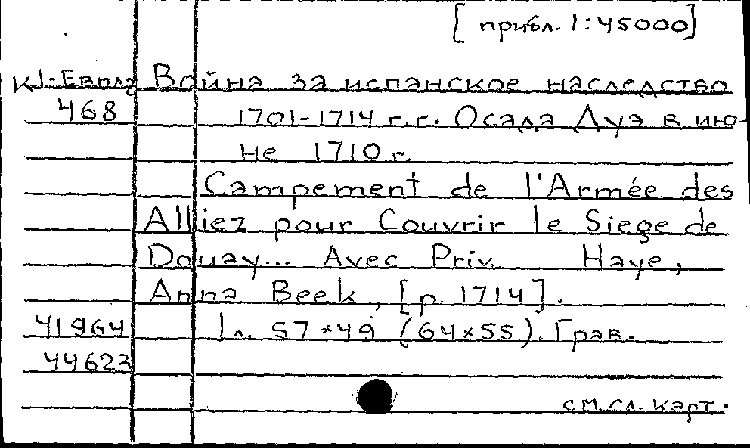 [прибл. 1:45000]
К1-Европа Война за испанское наследство
468 1701-1714 г.г. Осада Дуэ в ию-
не 1710 г.
Campement de l'Armée des
Alliez pour Couvrir le Siege de
Douay... Avec Priv. Haye,
Anna Beek, [p. 1714].
41964 1 л. 57×49 (64×55). Грав.
44623
см. сл. карт.